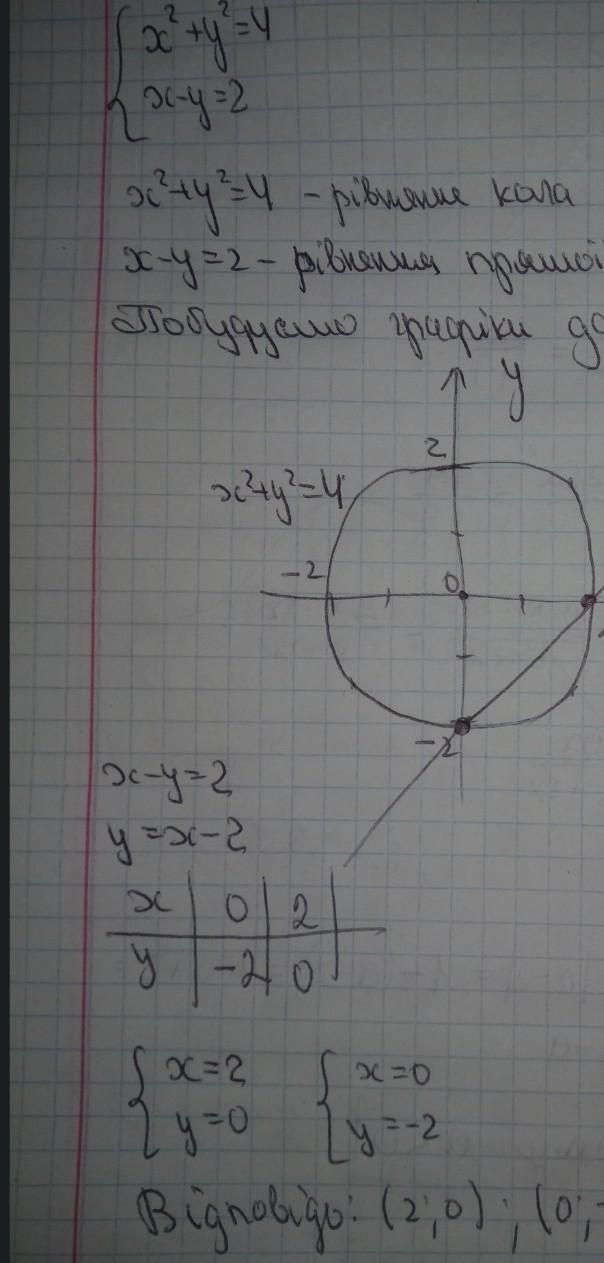 x²+y²=4
x-y=2
x²+y²=4 - рівняння кола
x-y=2 - рівняння прямої
Побудуємо графіки
y
2
x²+y²=4
-2
0
-2
x-y=2
y=x-2
x 0 2
y -2 0
x=2 x=0
y=0 y=-2
Відповідь: (2;0); (0;